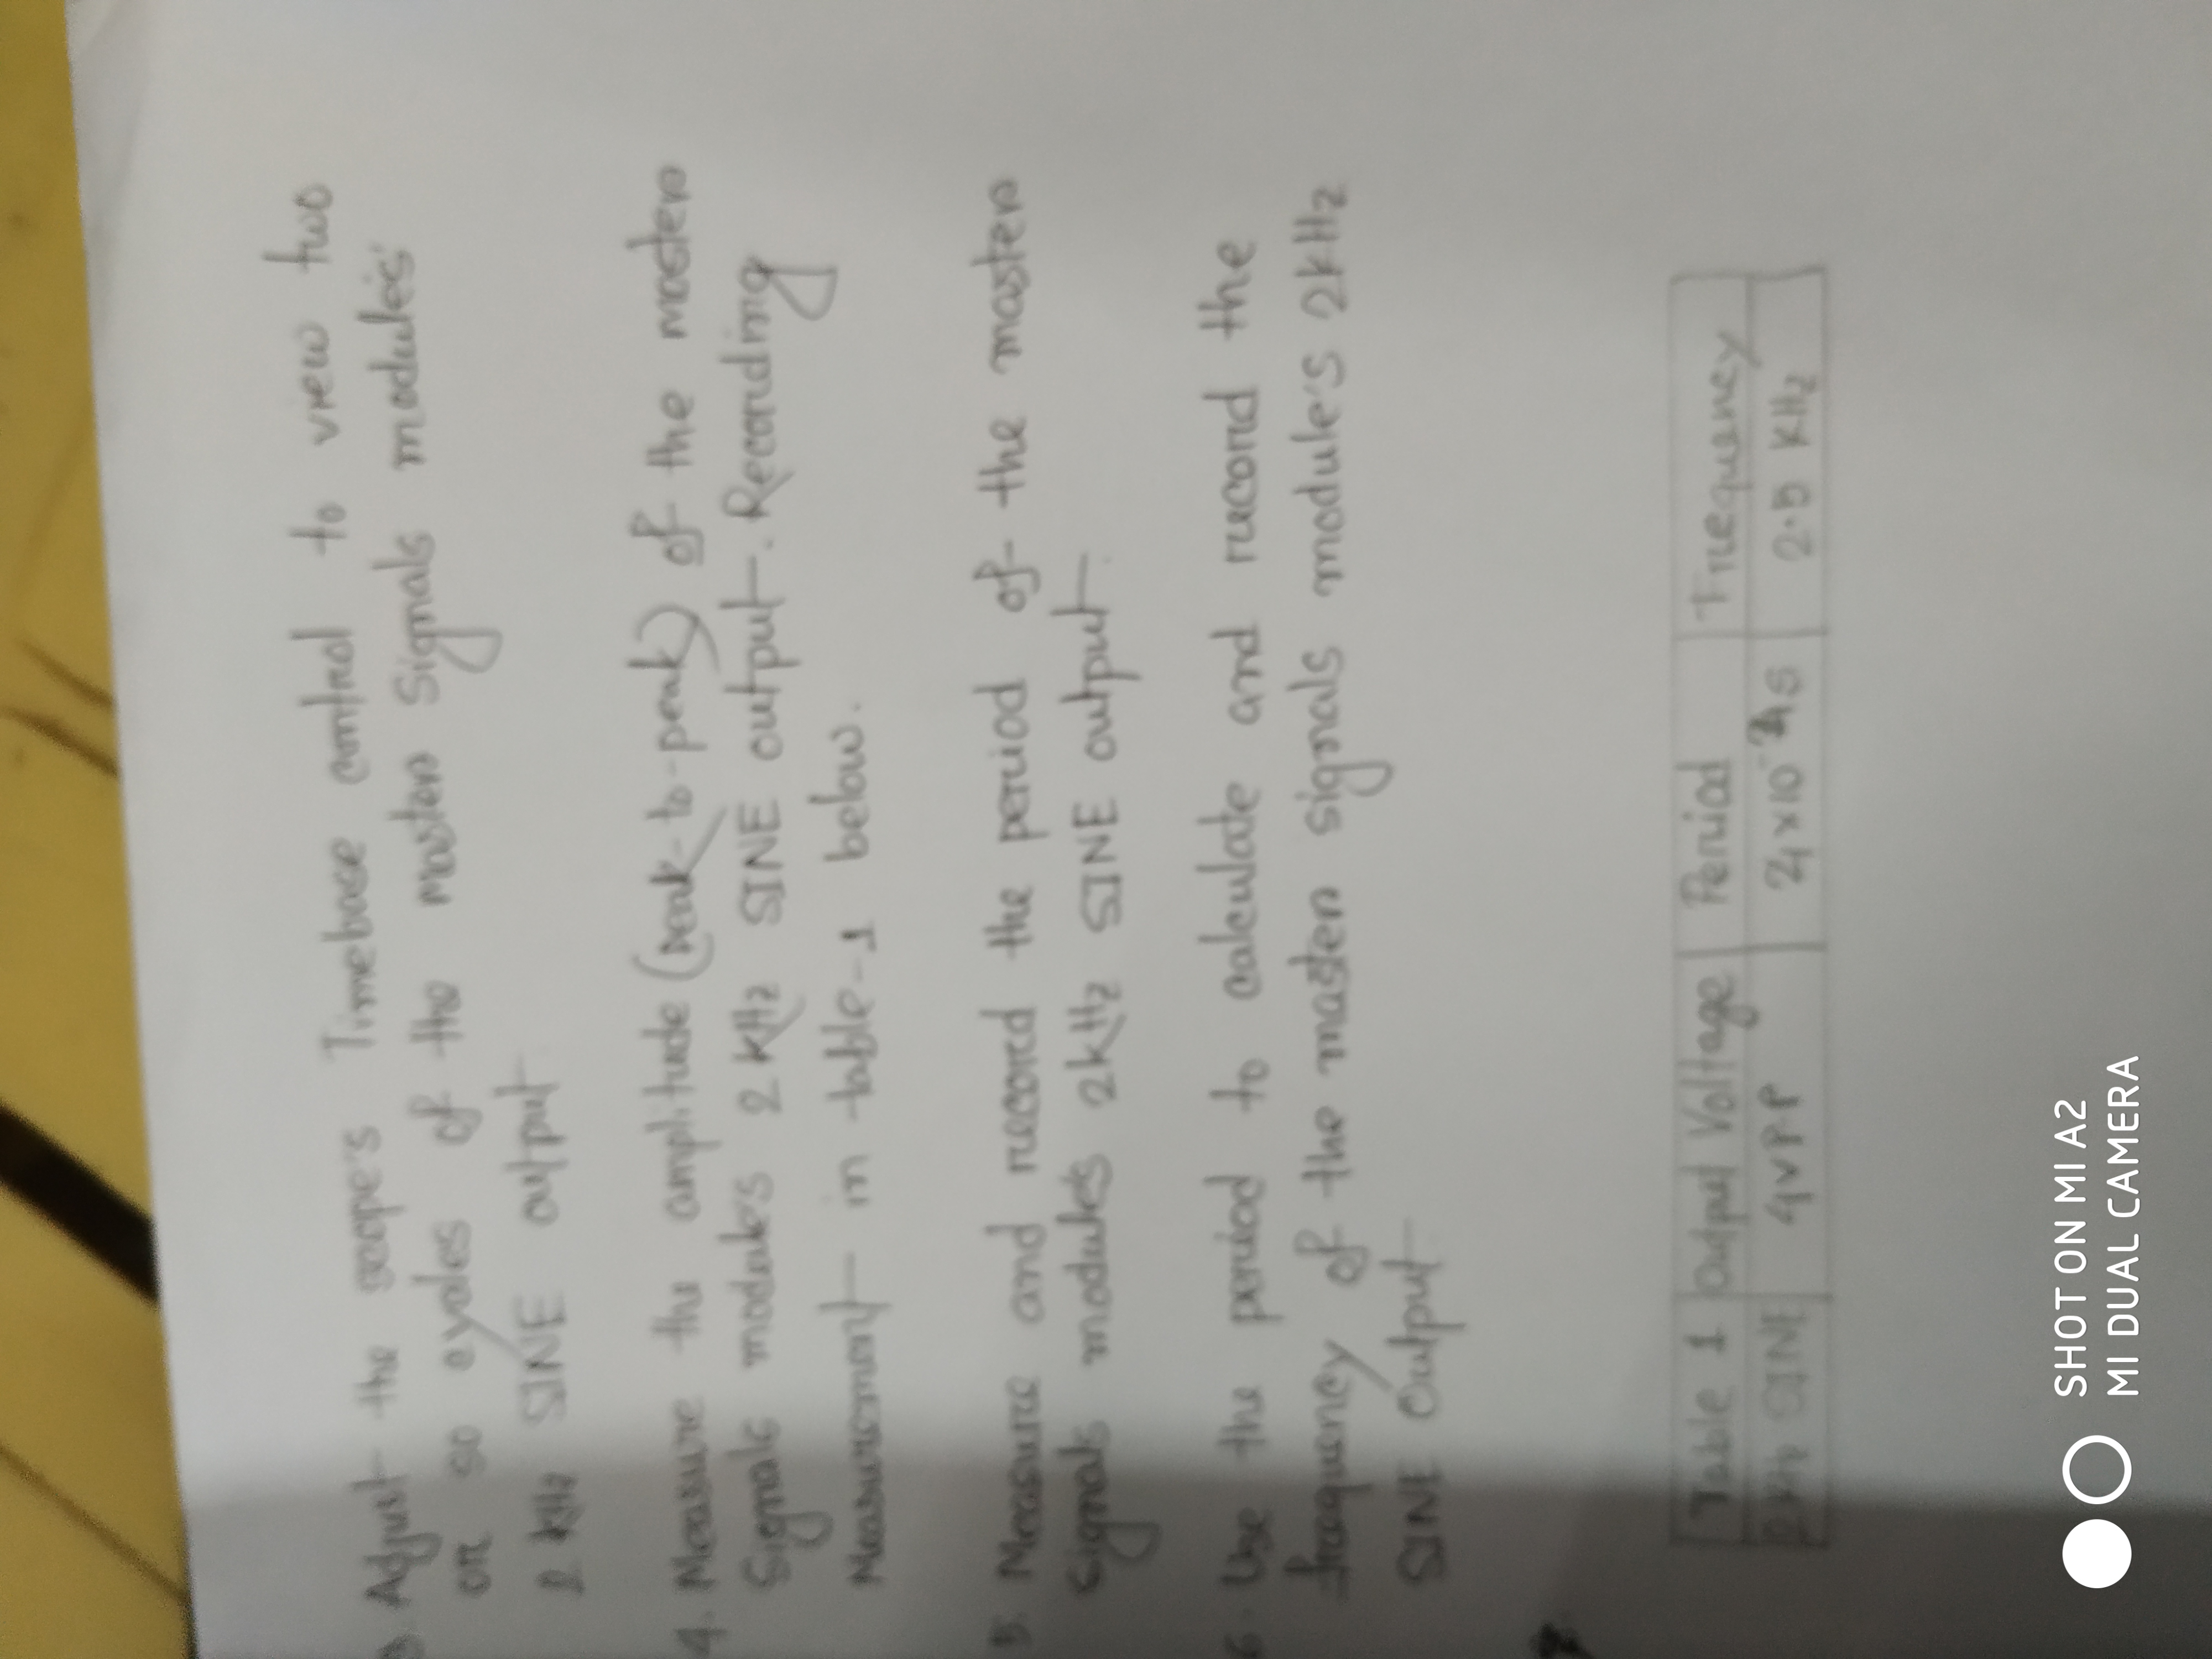 3. Adjust the scope's Timebase control to view two
or so cycles of the master Signals module's
2 kHz SINE output
4. Measure the amplitude (peak-to-peak) of the master
Signals module's 2 kHz SINE output. Recording
Measurement in table-1 below.
5. Measure and record the period of the master
Signals module's 2kHz SINE output.
6. Use the period to calculate and record the
frequency of the master signals module's 2kHz
SINE Output
Table 1 Output Voltage Period Frequency
2kHz SINE 4vPP 4×10⁻⁴s 2.5 KHz
SHOT ON MI A2
MI DUAL CAMERA